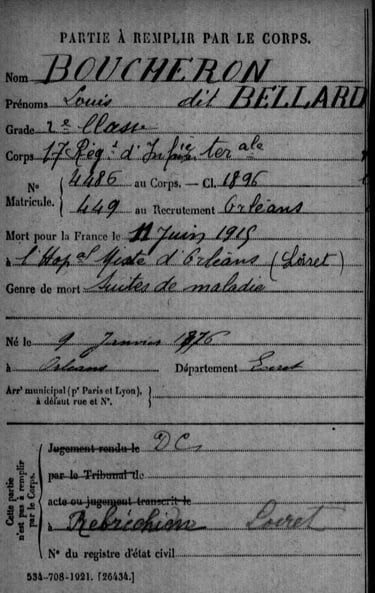 PARTIE À REMPLIR PAR LE CORPS.
Nom BOUCHERON
Prénoms Louis dit BELLARD
Grade 2e Classe
Corps 17 Régt d'Infie terale
N° Matricule. 4486 au Corps. — Cl. 1896
449 au Recrutement Orléans
Mort pour la France le 11 Juin 1915
à l'Hopal Mixte d'Orléans (Loiret)
Genre de mort Suites de maladie
Né le 9 Janvier 1876
à Orléans Département Loiret
Arrt municipal (pr Paris et Lyon), à défaut rue et N°.
Cette partie n'est pas à remplir par le Corps.
Jugement rendu le DC
par le Tribunal de
acte ou jugement transcrit le
à Rebréchien Loiret
N° du registre d'état civil
534-708-1921. [26434.]